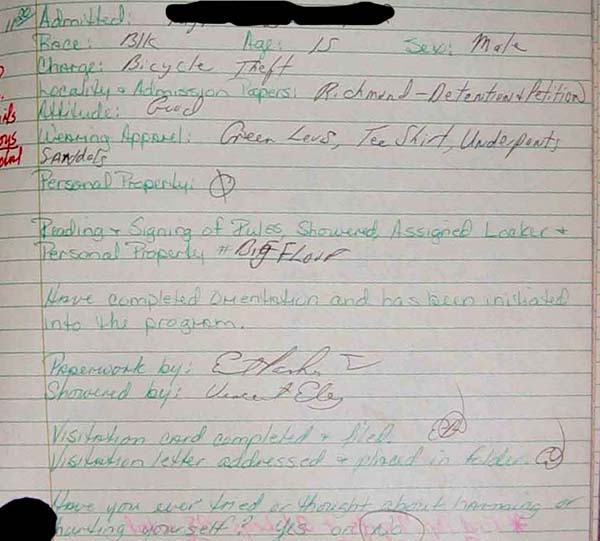 Admitted:
Race: Blk Age: 15 Sex: Male
Charge: Bicycle Theft
Locality & Admission Papers: Richmond - Detention & Petition
Attitude: Good
Wearing Apparel: Green Levs, Tee Shirt, Underpants
Sandals
Personal Property:
Reading & Signing of Rules, Showered, Assigned Locker &
Personal Property # Big Floor
Have completed Orientation and has been initiated
into the program.
Paperwork by:
Showered by: Vincent
Visitation card completed & filed.
Visitation letter addressed & placed in folder.
Have you ever tried or thought about harming or
hurting yourself? yes or no